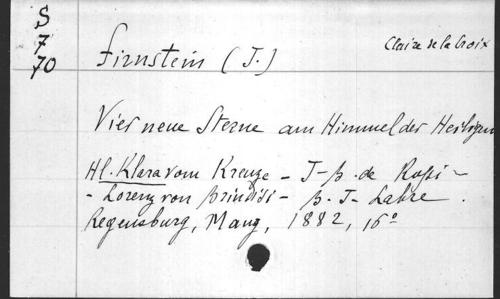 S
7
70
Firnstein (J.)
Claire de la Croix
Vier neue Sterne am Himmel der Heiligen
Hl. Klara vom Kreuze - J-B. de Rossi -
- Lorenz von Brindisi - B. J- Labre.
Regensburg, Manz, 1882, 16°